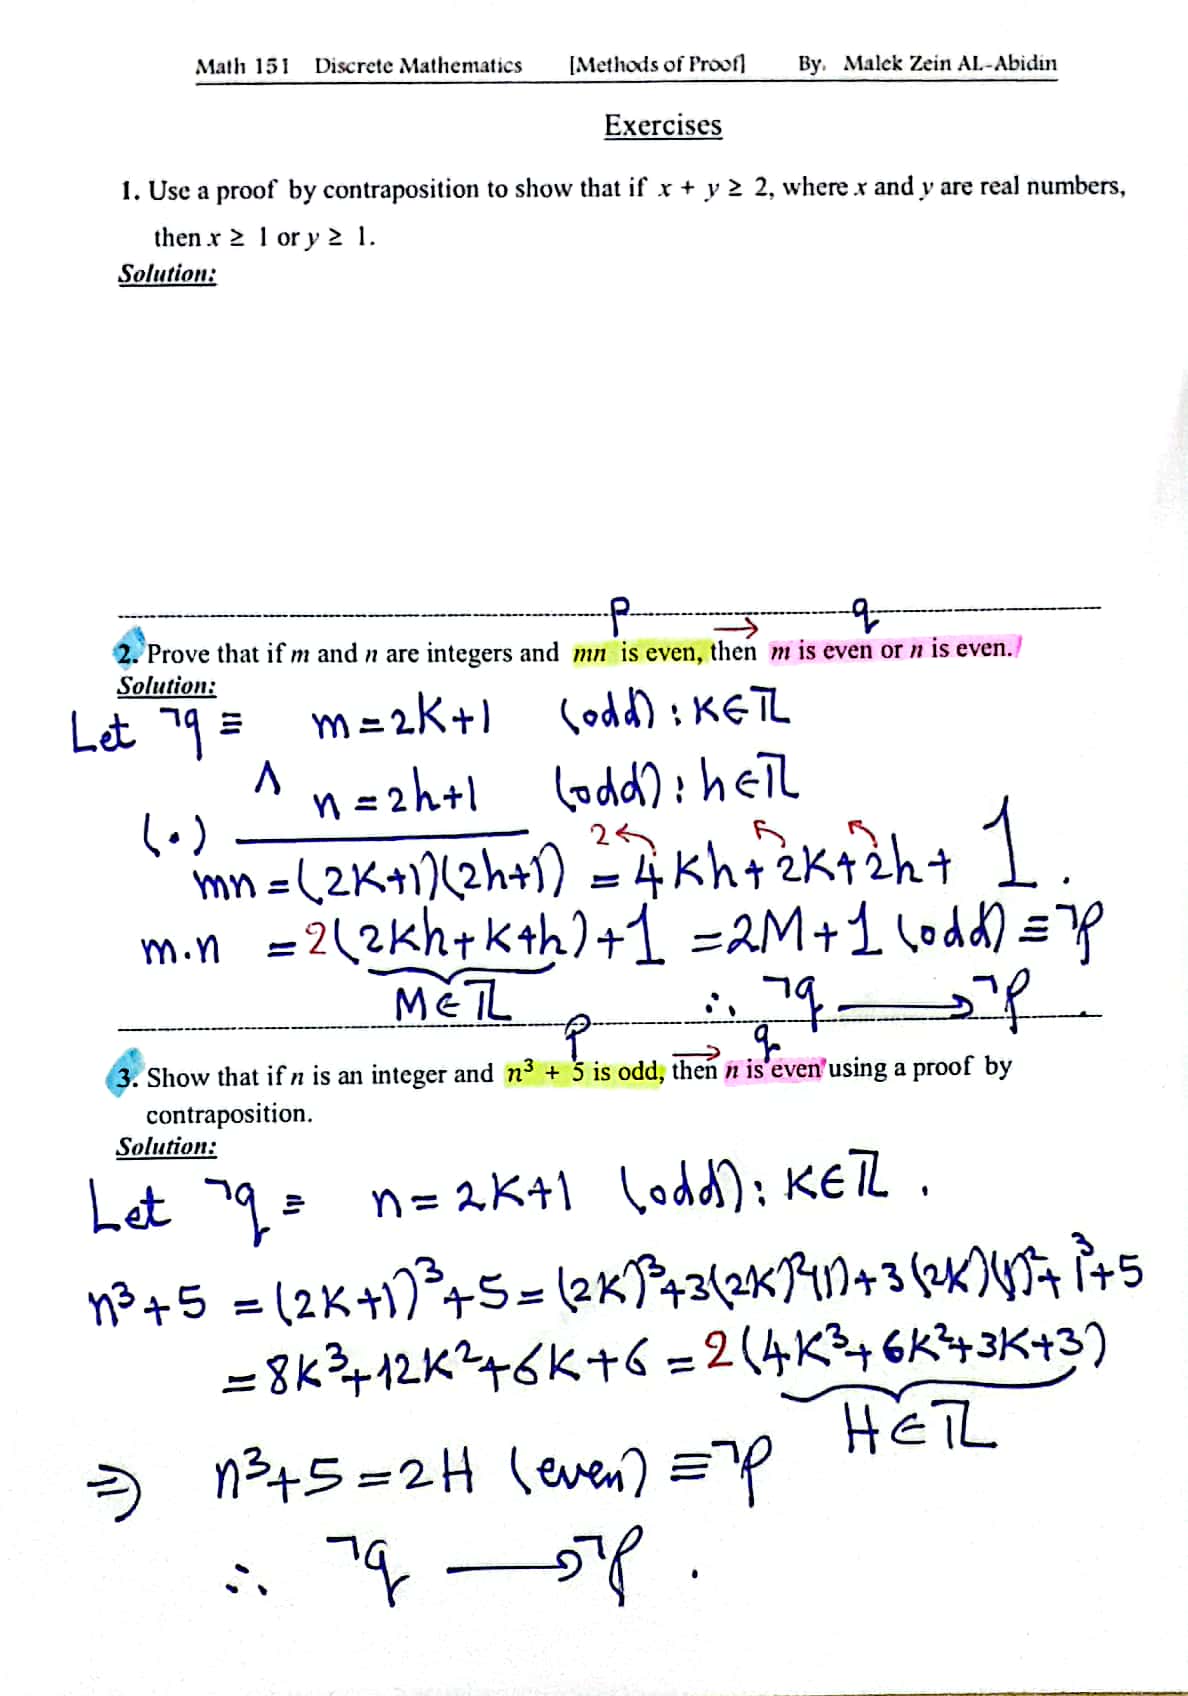 Math 151 Discrete Mathematics [Methods of Proof] By. Malek Zein AL-Abidin
Exercises
1. Use a proof by contraposition to show that if x + y ≥ 2, where x and y are real numbers,
then x ≥ 1 or y ≥ 1.
Solution:
p q
2. Prove that if m and n are integers and mn is even, then m is even or n is even.
Solution:
Let ¬q ≡ m = 2K+1 (odd) ; K∈ℤ
∧ n = 2h+1 (odd) ; h∈ℤ
(·)
mn = (2K+1)(2h+1) = 4Kh + 2K + 2h + 1.
2
m.n = 2(2Kh + K + h) + 1 = 2M + 1 (odd) ≡ ¬p
M∈ℤ ∴ ¬q → ¬p.
p q
3. Show that if n is an integer and n³ + 5 is odd, then n is even using a proof by
contraposition.
Solution:
Let ¬q ≡ n = 2K+1 (odd) ; K∈ℤ.
n³+5 = (2K+1)³+5 = (2K)³+3(2K)²(1)+3(2K)(1)²+1³+5
= 8K³+12K²+6K+6 = 2(4K³+6K²+3K+3)
H∈ℤ
⇒ n³+5 = 2H (even) ≡ ¬p
∴ ¬q → ¬p.